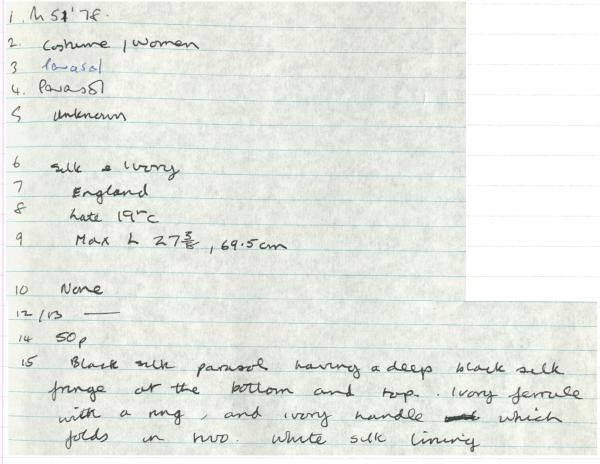 1. h 51'78.
2. Costume, women
3 Parasol
4. Parasol
5 unknown
6 silk & ivory
7 England
8 Late 19th C
9 Max L 27 3/8, 69.5cm
10 None
12/13 —
14 50p
15 Black silk parasol having a deep black silk
fringe at the bottom and top. Ivory ferrule
with a ring, and ivory handle which
folds in two. White silk lining